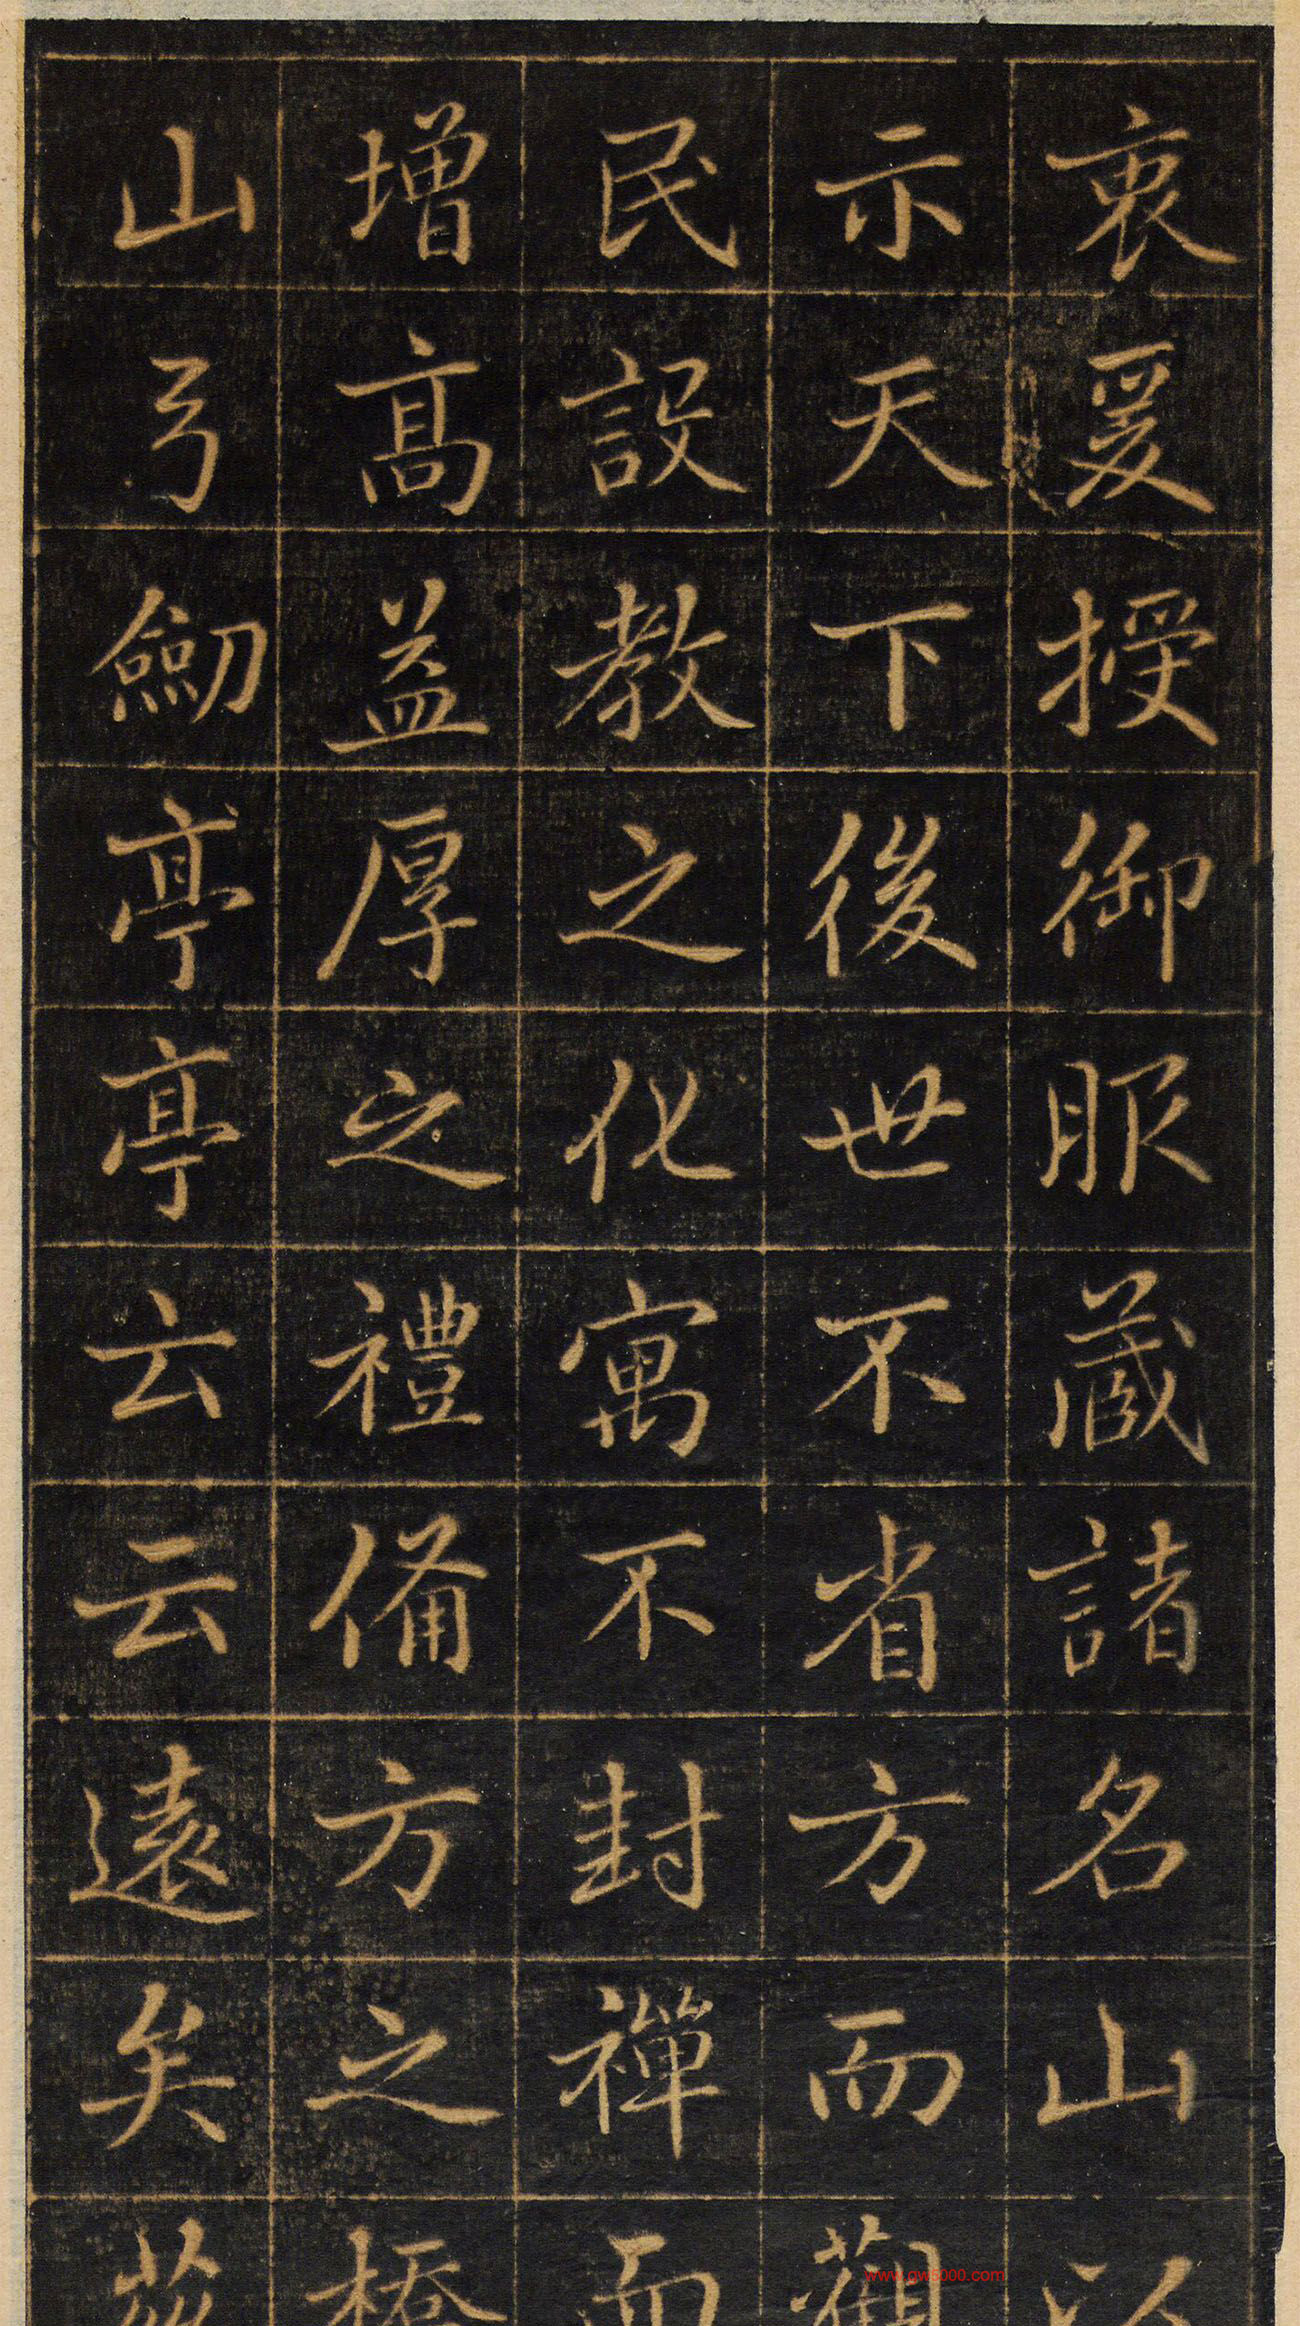 衷爰授御服藏諸名山以
示天下後世不省方而觀
民設教之化寓不封禪而
增高益厚之禮備方之橋
山弓劒亭亭云云遠矣茲
www.gw5000.com